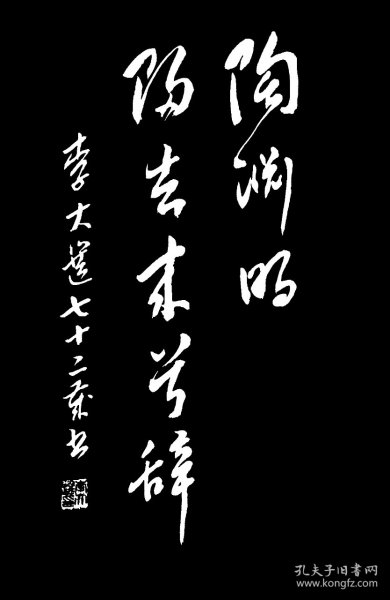 陶渊明
归去来兮辞
李大选七十二岁书
孔夫子旧书网
www.kongfz.com